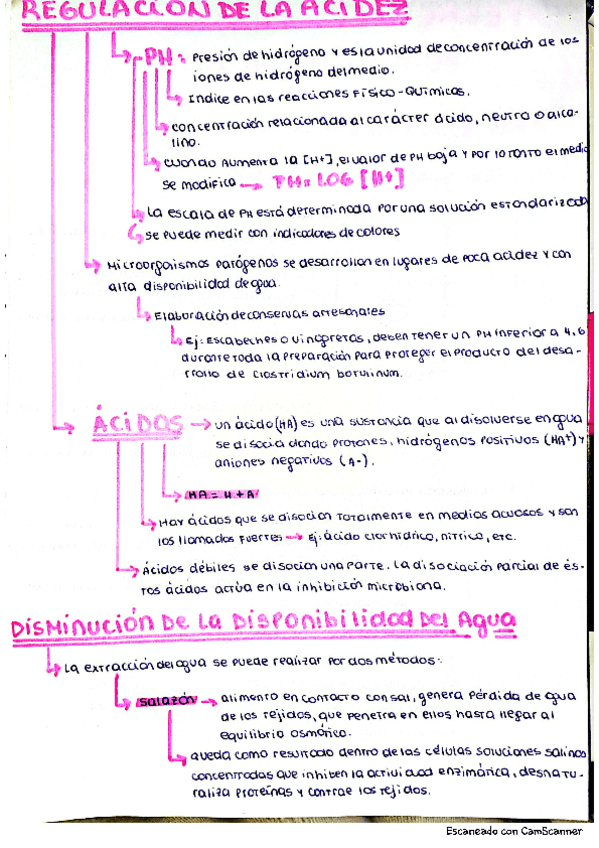 REGULACIÓN DE LA ACIDEZ
PH: Presión de hidrógeno y es la unidad de concentración de los
iones de hidrógeno del medio.
Indice en las reacciones Físico-Químicas.
concentración relacionada al carácter ácido, neutro o alca-
lino.
cuando aumenta la [H+], el valor de PH baja y por lo tanto el medio
se modifica → PH = LOG [H+]
La escala de PH está determinada por una solución estandarizada
se puede medir con indicadores de colores
Microorganismos patógenos se desarrollan en lugares de poca acidez y con
alta disponibilidad de agua.
Elaboración de conservas artesanales
Ej: Escabeches o vinagretas, deben tener un PH inferior a 4,6
durante toda la preparación para proteger el producto del desa-
rrollo de Clostridium botulinum.
ÁCIDOS → un ácido (HA) es una sustancia que al disolverse en agua
se disocia dando protones, hidrógenos positivos (HA+) y
aniones negativos (A-).
HA = H + A
Hay ácidos que se disocian totalmente en medios acuosos y son
los llamados fuertes → Ej: ácido clorhídrico, nítrico, etc.
Ácidos débiles se disocian una parte. La disociación parcial de és-
tos ácidos actúa en la inhibición microbiana.
DISMINUCIÓN DE LA DISPONIBILIDAD DEL AGUA
La extracción del agua se puede realizar por dos métodos:
salazón → alimento en contacto con sal, genera pérdida de agua
de los tejidos, que penetra en ellos hasta llegar al
equilibrio osmótico.
queda como resultado dentro de las células soluciones salinas
concentradas que inhiben la actividad enzimática, desnatu-
raliza proteínas y contrae los tejidos.
Escaneado con CamScanner